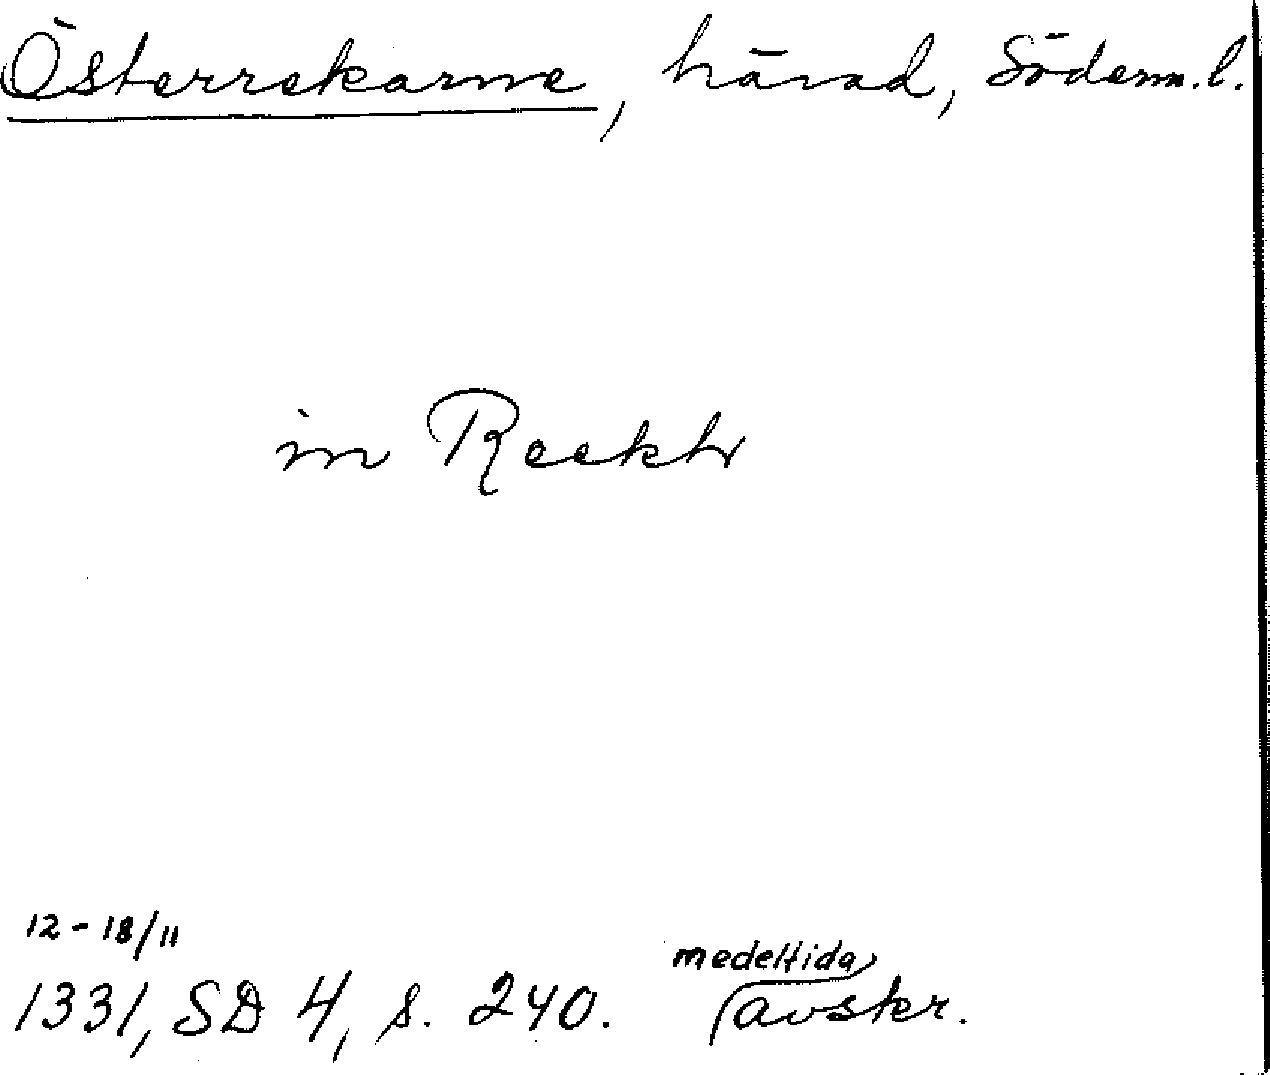 Österrekarne, härad, Söderm.l.
in Reekh
12-18/11
medeltida
1331, SD 4, s. 240. avskr.